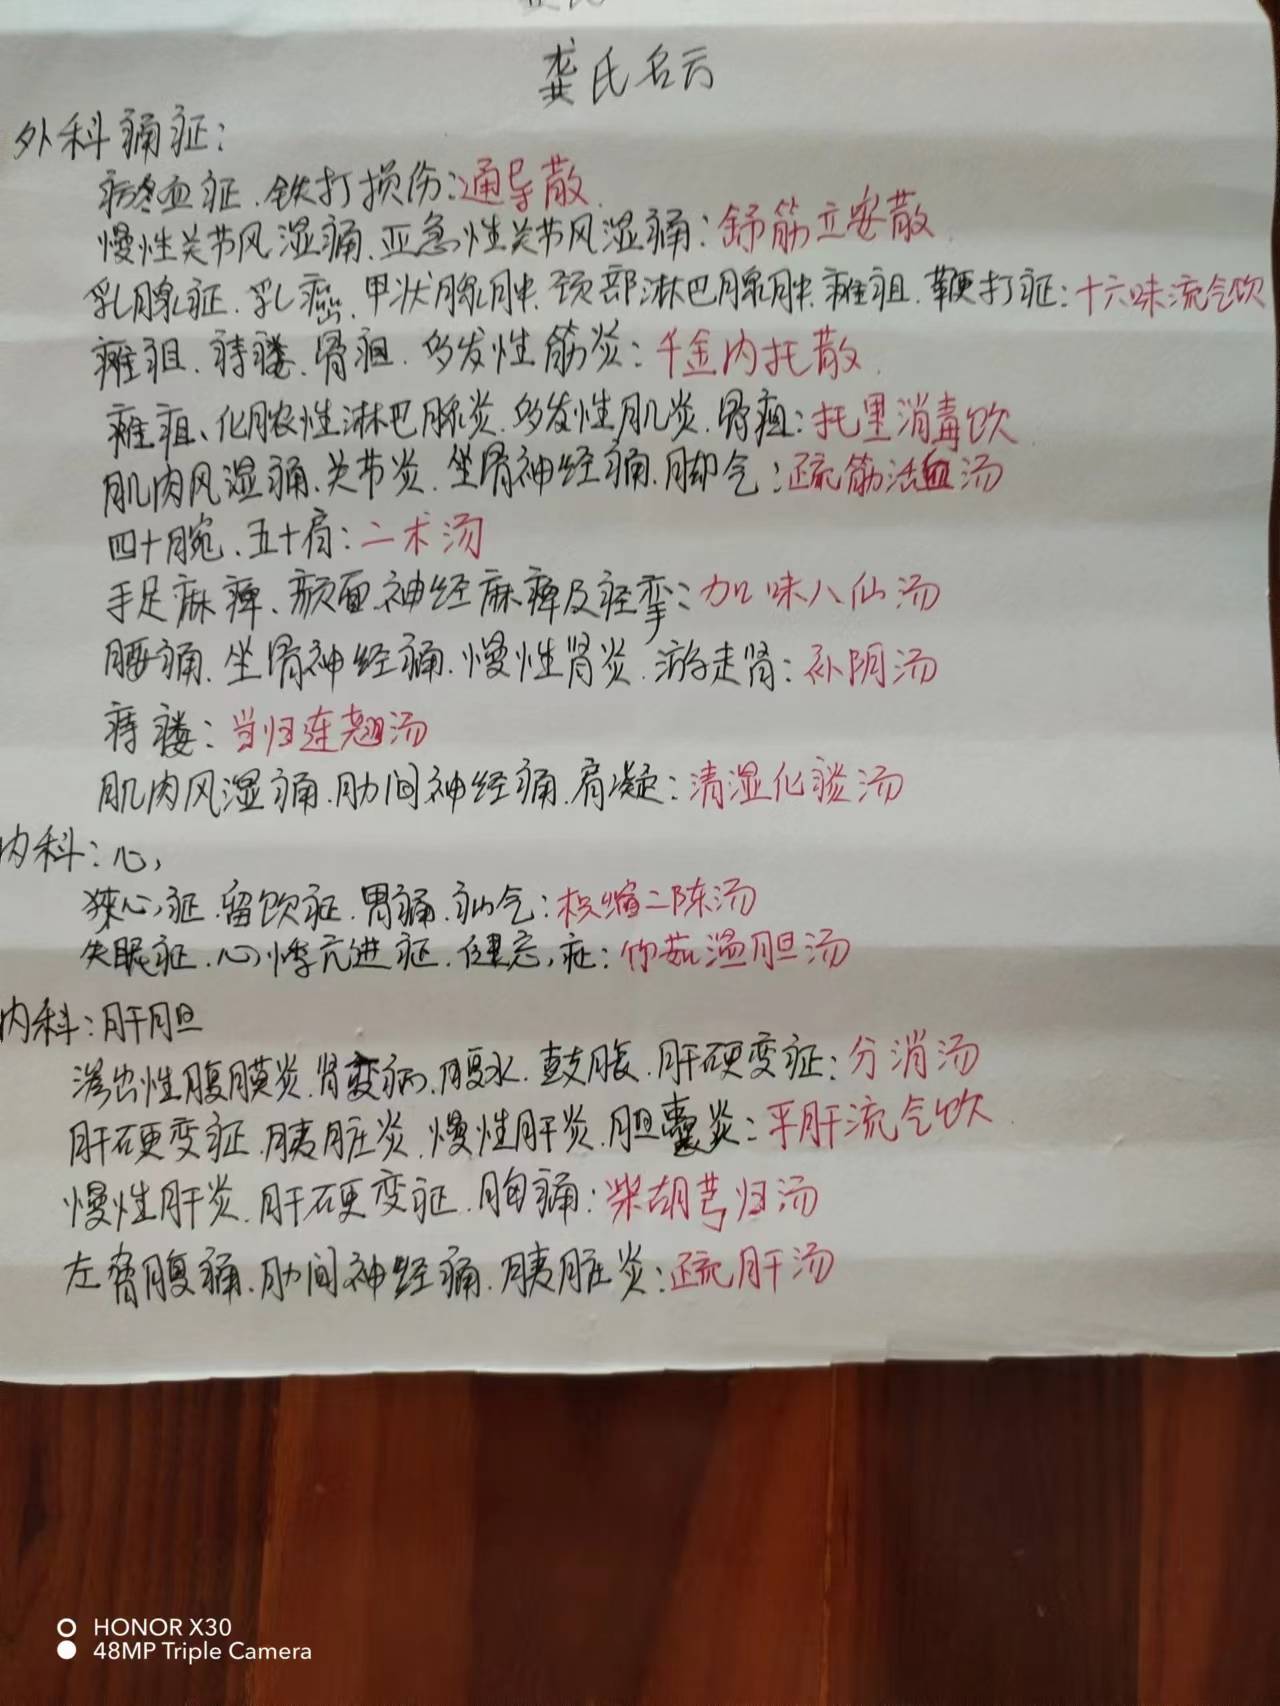 龚氏名方
外科痛证:
瘀血证、铁打损伤:通导散
慢性关节风湿痛、亚急性关节风湿痛:舒筋立安散
乳腺证、乳癌、甲状腺肿、颈部淋巴腺肿、瘫疽、鞭打证:十六味流气饮
瘫疽、痔瘘、骨疽、多发性筋炎:千金内托散
瘫疽、化脓性淋巴腺炎、多发性肌炎、骨疽:托里消毒饮
肌肉风湿痛、关节炎、坐骨神经痛、脚气:疏筋活血汤
四十腕、五十肩:二术汤
手足麻痹、颜面神经麻痹及痉挛:加味八仙汤
腰痛、坐骨神经痛、慢性肾炎、游走肾:补阴汤
痔瘘:当归连翘汤
肌肉风湿痛、肋间神经痛、肩凝:清湿化痰汤
内科:心,
狭心证、留饮证、胃痛、疝气:枳缩二陈汤
失眠证、心悸亢进证、健忘症:竹茹温胆汤
内科:肝胆
渗出性腹膜炎、肾变病、腹水、鼓胀、肝硬变证:分消汤
肝硬变证、胰脏炎、慢性肝炎、胆囊炎:平肝流气饮
慢性肝炎、肝硬变证、胸痛:柴胡芎归汤
左胁腹痛、肋间神经痛、胰脏炎:疏肝汤
HONOR X30
48MP Triple Camera